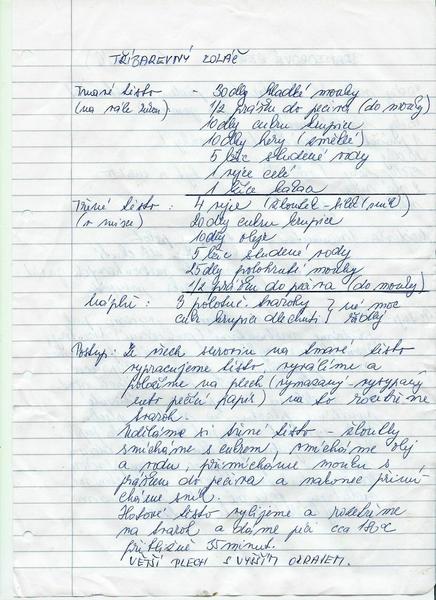 TŘÍBAREVNÝ KOLÁČ
Tmavé těsto - 30dkg hladké mouky
(na vále ručně): 1/2 prášku do pečiva (do mouky)
10dkg cukru krupice
10dkg hery (změklé)
5 lžic studené vody
1 vejce celé
1 lžíce kakaa
Třené těsto : 4 vejce (žloutek - bílek (sníh)
(v míse) 20dkg cukru krupice
10dkg oleje
5 lžic studené vody
25dkg polohrubé mouky
1/2 prášku do pečiva (do mouky)
Náplň : 3 polotuč. tvarohy } ne moc
cukr krupice dle chuti } řídký
Postup: Ze všech surovin na tmavé těsto
vypracujeme těsto, vyválíme a
položíme na plech (vymazaný-vysypaný
nebo pečící papír) na to rozetřeme
tvaroh.
Uděláme si třené těsto - žloutky
smícháme s cukrem, vmícháme olej
a vodu, přimícháme mouku s
práškem do pečiva a nakonec přimí-
cháme sníh.
Hotové těsto vylijeme a rozetřeme
na tvaroh a dáme péci cca 180°C
přibližně 35minut.
VĚTŠÍ PLECH S VYŠŠÍM OKRAJEM.